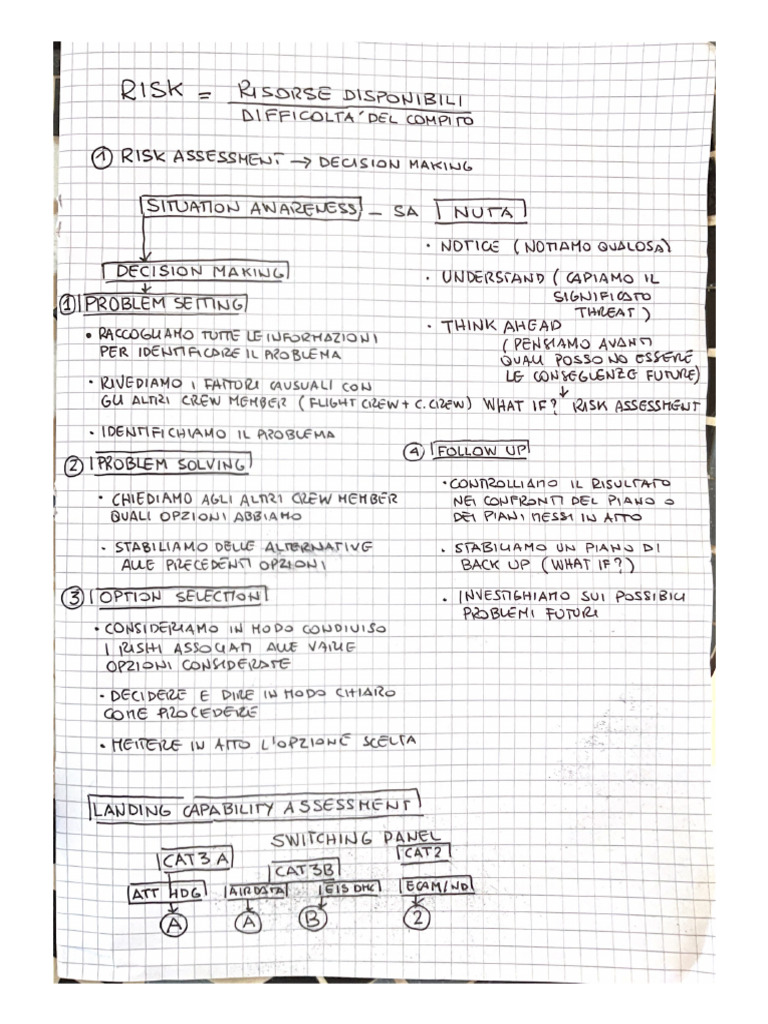 RISK = RISORSE DISPONIBILI
DIFFICOLTA' DEL COMPITO
① RISK ASSESSMENT → DECISION MAKING
SITUATION AWARENESS - SA NUTA
• NOTICE (NOTIAMO QUALOSA)
• UNDERSTAND (CAPIAMO IL
SIGNIFICATO
THREAT)
• THINK AHEAD
(PENSIAMO AVANTI
QUALI POSSONO ESSERE
LE CONSEGUENZE FUTURE)
↓
WHAT IF? RISK ASSESSMENT
DECISION MAKING
① PROBLEM SETTING
• RACCOGLIAMO TUTTE LE INFORMAZIONI
PER IDENTIFICARE IL PROBLEMA
• RIVEDIAMO I FATTORI CAUSUALI CON
GLI ALTRI CREW MEMBER (FLIGHT CREW + C.CREW)
• IDENTIFICHIAMO IL PROBLEMA
② PROBLEM SOLVING
• CHIEDIAMO AGLI ALTRI CREW MEMBER
QUALI OPZIONI ABBIAMO
• STABILIAMO DELLE ALTERNATIVE
ALLE PRECEDENTI OPZIONI
③ OPTION SELECTION
• CONSIDERIAMO IN MODO CONDIVISO
I RISHI ASSOCIATI ALLE VARIE
OPZIONI CONSIDERATE
• DECIDERE E DIRE IN MODO CHIARO
COME PROCEDERE
• METTERE IN ATTO L'OPZIONE SCELTA
④ FOLLOW UP
• CONTROLLIAMO IL RISULTATO
NEI CONFRONTI DEL PIANO O
DEI PIANI MESSI IN ATTO
• STABILIAMO UN PIANO DI
BACK UP (WHAT IF?)
• INVESTIGHIAMO SUI POSSIBILI
PROBLEMI FUTURI
LANDING CAPABILITY ASSESSMENT
SWITCHING PANEL
CAT3 A CAT3B CAT2
ATT HDG AIRDATA EIS DMC ECAM/ND
A A B 2